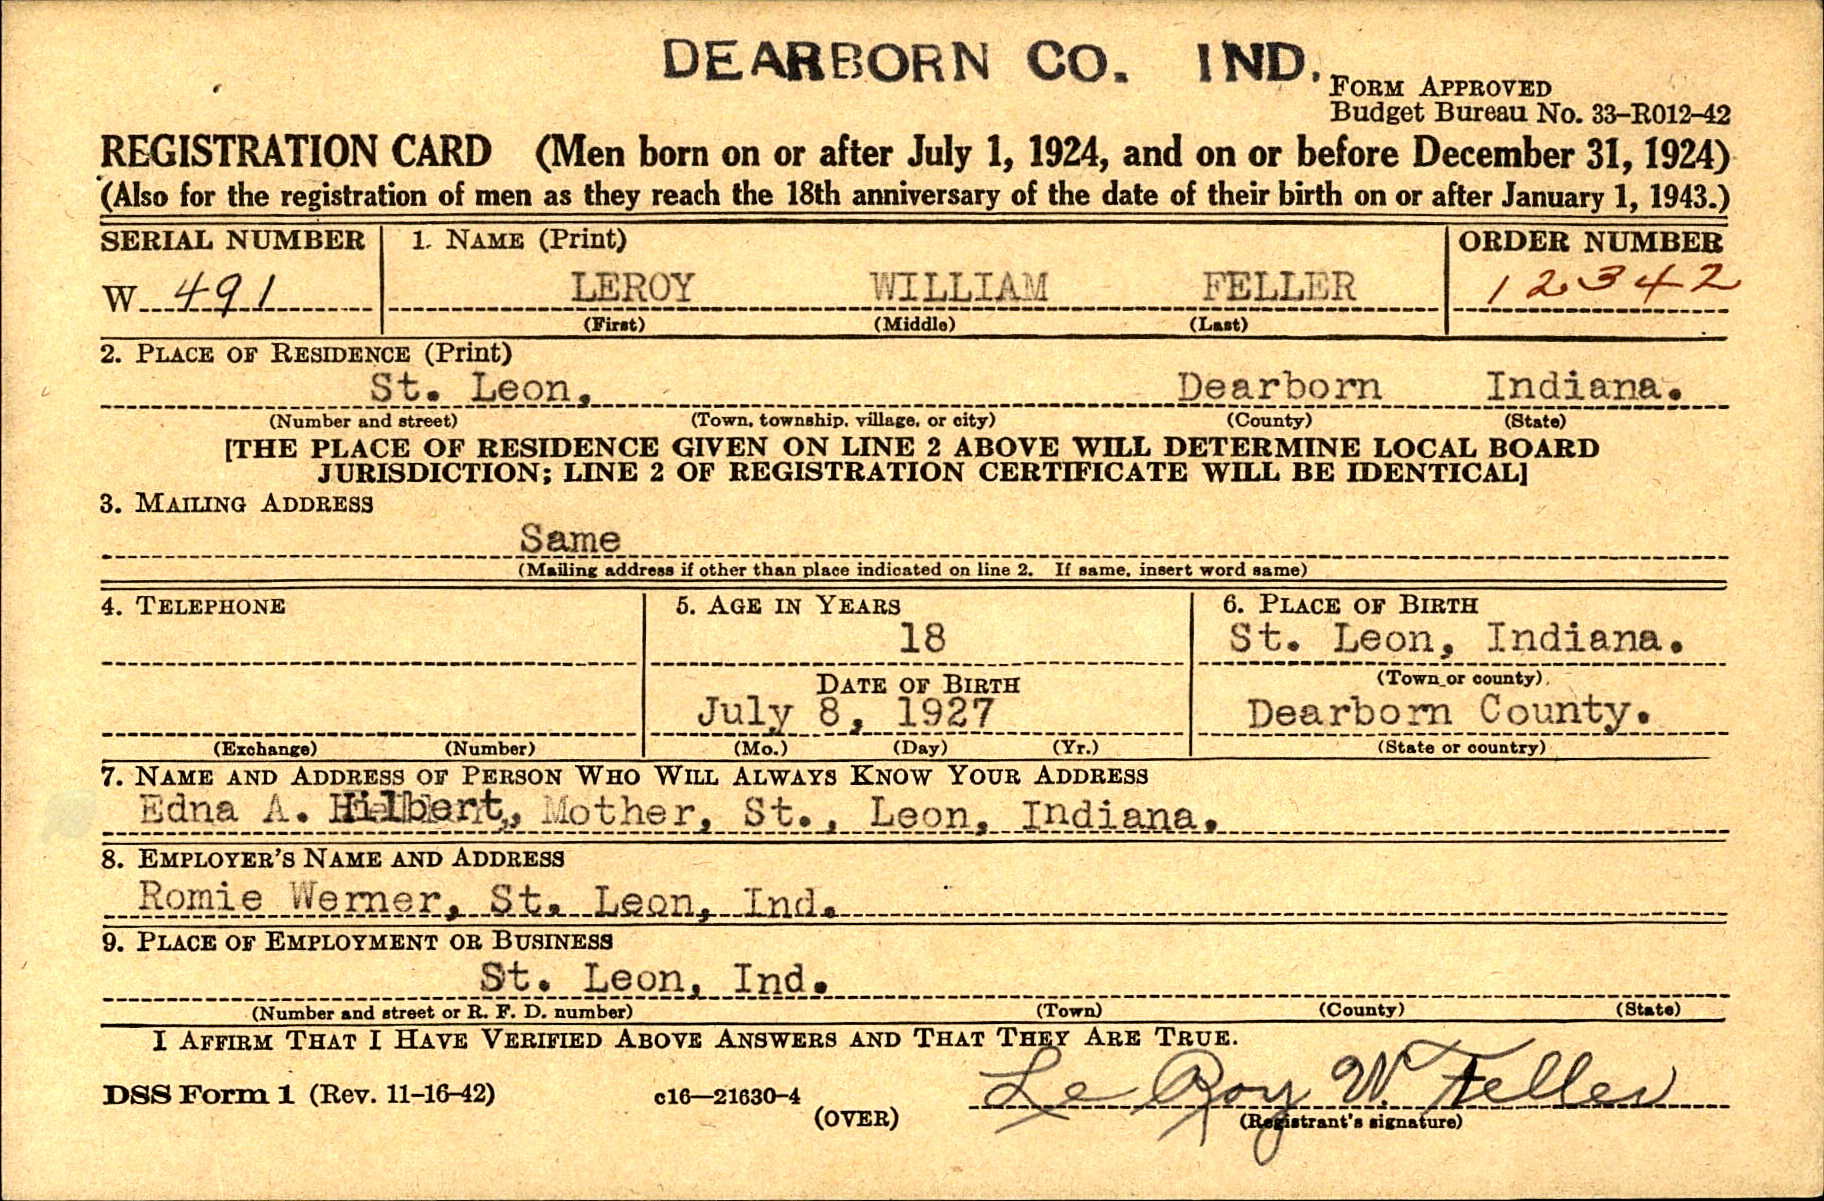 DEARBORN CO. IND.
FORM APPROVED
Budget Bureau No. 33-R012-42
REGISTRATION CARD (Men born on or after July 1, 1924, and on or before December 31, 1924)
(Also for the registration of men as they reach the 18th anniversary of the date of their birth on or after January 1, 1943.)
SERIAL NUMBER 1. NAME (Print) ORDER NUMBER
W 491 LEROY WILLIAM FELLER 12342
(First) (Middle) (Last)
2. PLACE OF RESIDENCE (Print)
St. Leon, Dearborn Indiana.
(Number and street) (Town, township, village, or city) (County) (State)
[THE PLACE OF RESIDENCE GIVEN ON LINE 2 ABOVE WILL DETERMINE LOCAL BOARD
JURISDICTION; LINE 2 OF REGISTRATION CERTIFICATE WILL BE IDENTICAL]
3. MAILING ADDRESS
Same
(Mailing address if other than place indicated on line 2. If same, insert word same)
4. TELEPHONE 5. AGE IN YEARS 6. PLACE OF BIRTH
18 St. Leon, Indiana.
DATE OF BIRTH (Town or county)
July 8, 1927 Dearborn County.
(Exchange) (Number) (Mo.) (Day) (Yr.) (State or country)
7. NAME AND ADDRESS OF PERSON WHO WILL ALWAYS KNOW YOUR ADDRESS
Edna A. Hilbert, Mother, St., Leon, Indiana.
8. EMPLOYER'S NAME AND ADDRESS
Romie Werner, St. Leon, Ind.
9. PLACE OF EMPLOYMENT OR BUSINESS
St. Leon, Ind.
(Number and street or R. F. D. number) (Town) (County) (State)
I AFFIRM THAT I HAVE VERIFIED ABOVE ANSWERS AND THAT THEY ARE TRUE.
DSS Form 1 (Rev. 11-16-42) c16—21630-4 Le Roy W. Feller
(OVER) (Registrant's signature)